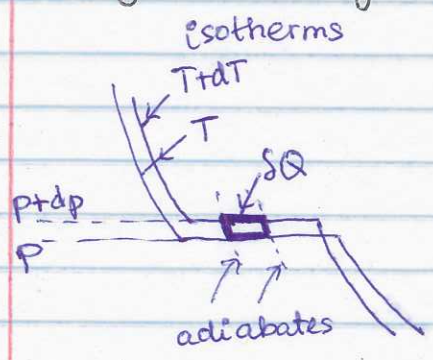 isotherms
T+dT
T
δQ
p+dp
p
adiabates